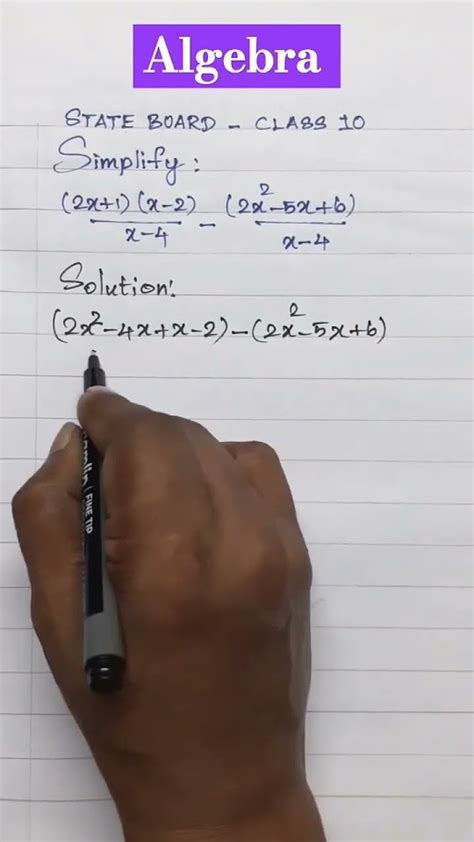 Algebra
STATE BOARD - CLASS 10
Simplify:
(2x+1)(x-2)/x-4 - (2x²-5x+6)/x-4
Solution:
(2x²-4x+x-2)-(2x²-5x+6)
FINE TIP